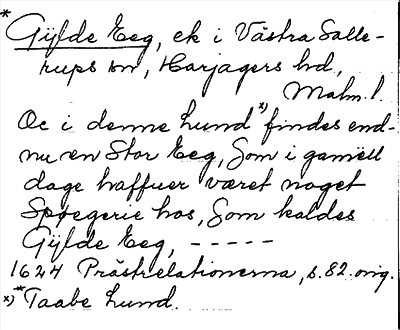 * Gijlde Eeg, ek i Västra Salle-
rups sn, Harjagers hd,
Malm.l.
Oc i denne Lund x) findes end-
nu en Stor Eeg, Som i gamell
dage haffuer været noget
Spøegerie hos, Som kaldes
Gijlde Eeg, - - - - -
1624 Prästrelationerna, s. 82. orig.
x) * Taabe Lund.